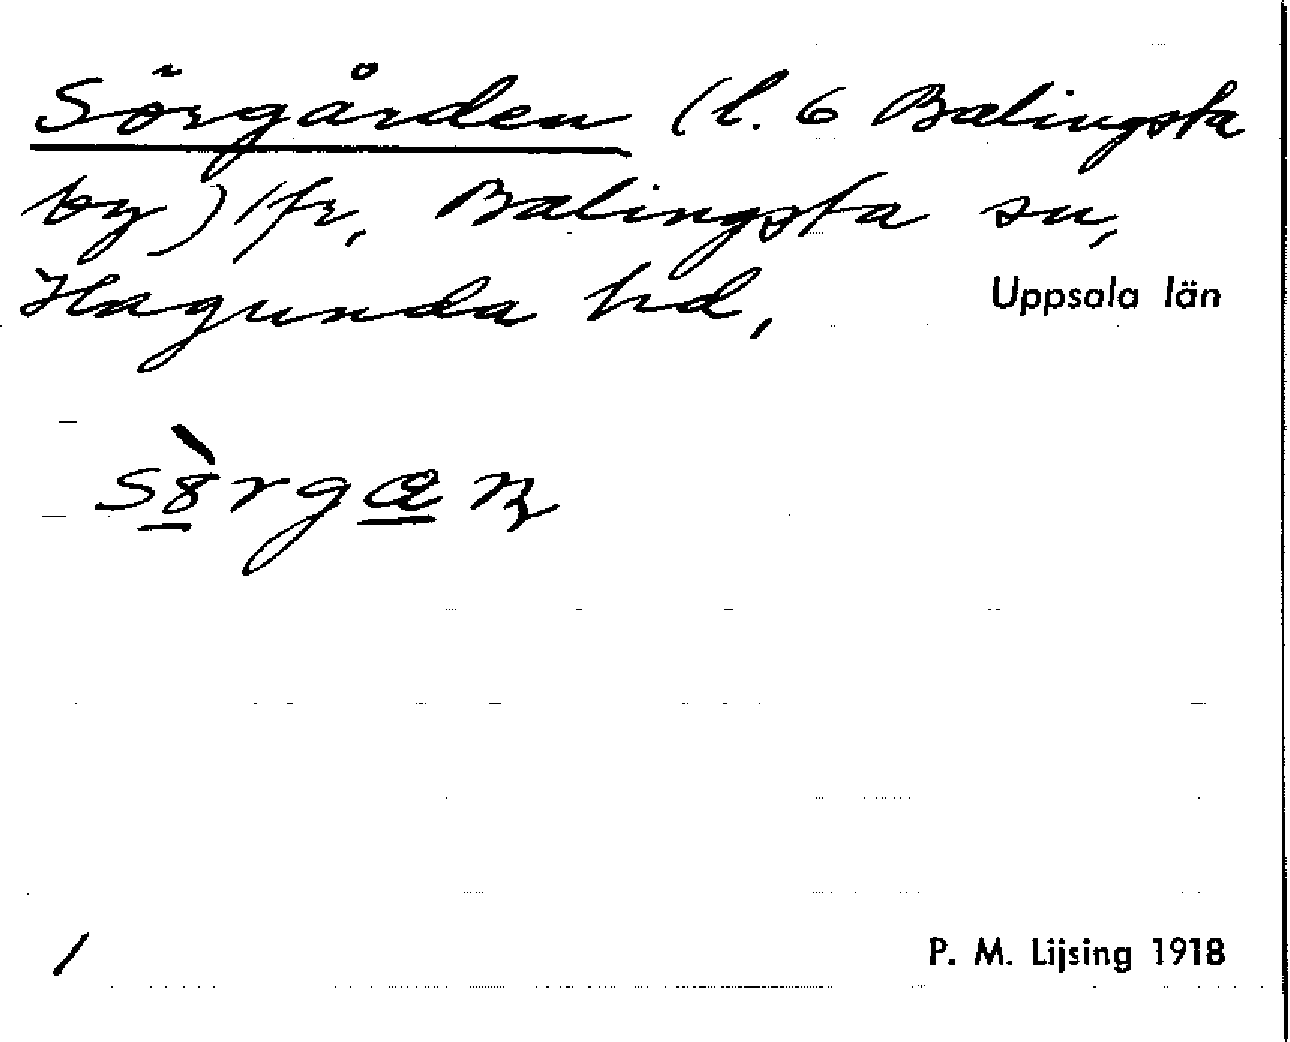 Sörgården (l. 6 Balingsta
by) 1/fr, Balingsta sn,
Hagunda hd, Uppsala län
1 P. M. Lijsing 1918